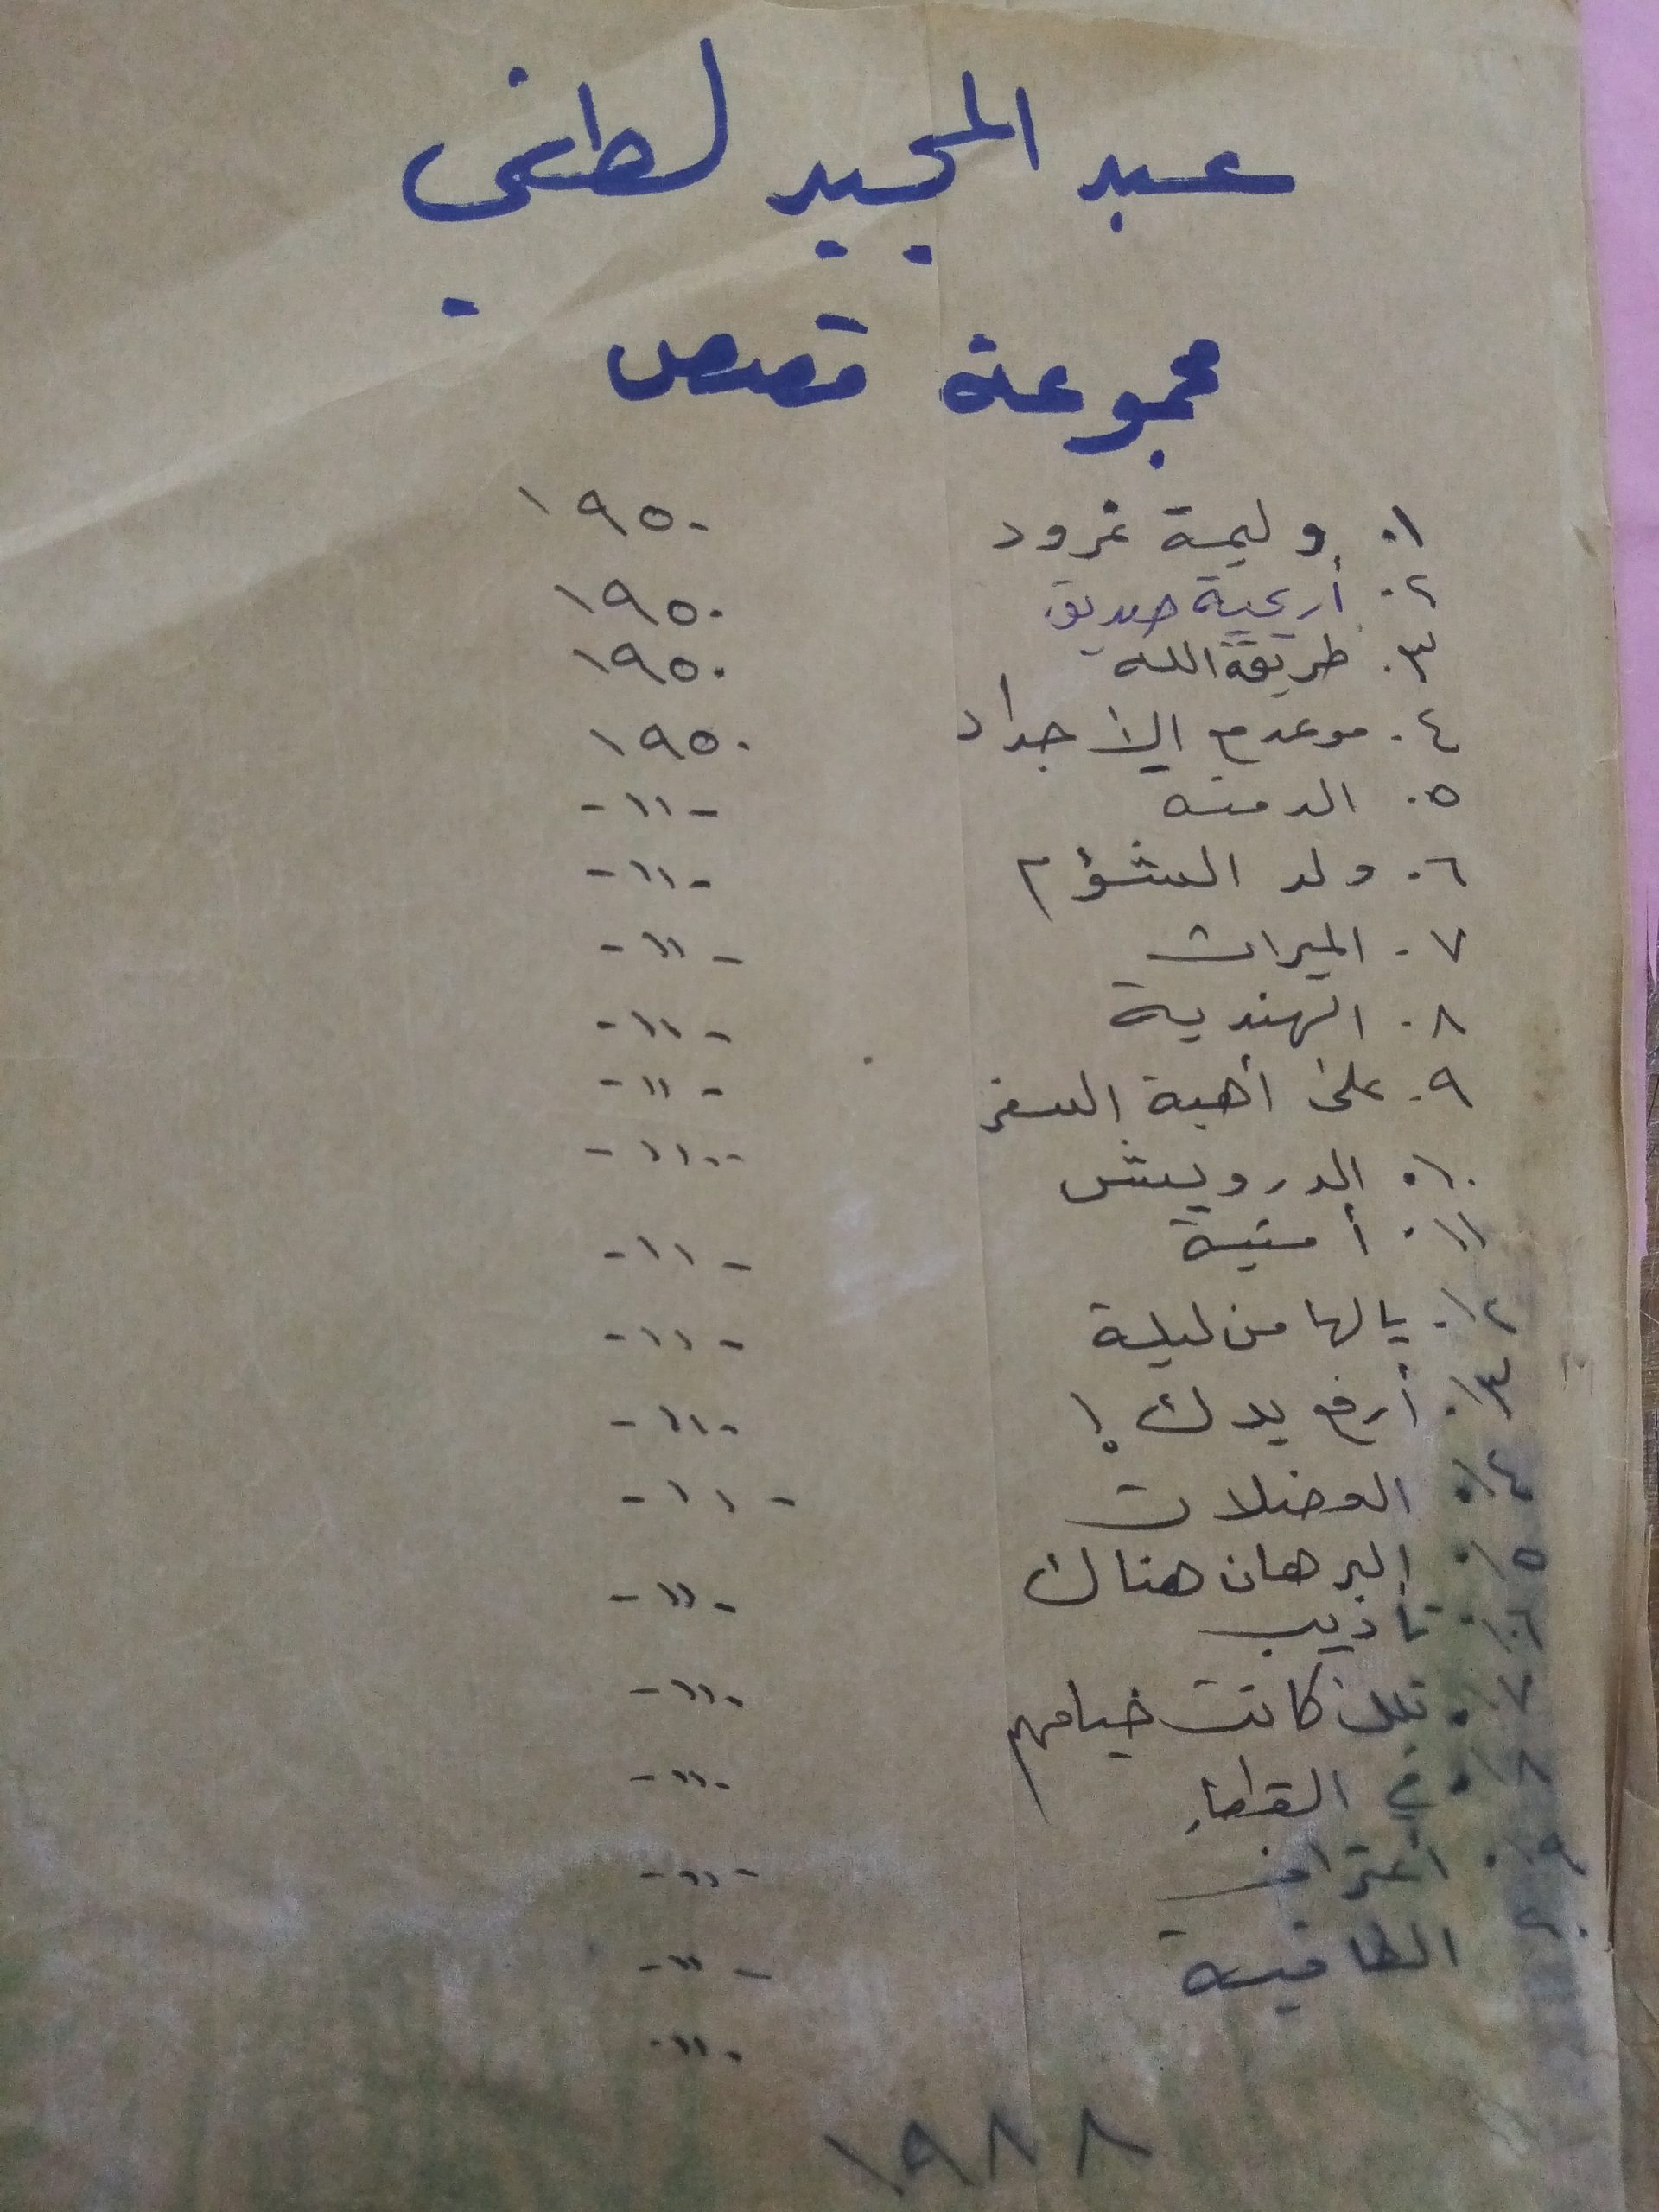 عبد المجيد لطفي
مجموعة قصص
١. وليمة نمرود ١٩٥٠
٢. أريحية صديق ١٩٥٠
٣. طريقة الله ١٩٥٠
٤. موعد مع الأجداد ١٩٥٠
٥. الدمنه -١١-
٦. ولد الشؤم -١١-
٧. الميراث -١١-
٨. الهندية -١١-
٩. على أهبة السفر -١١-
١٠. الدرويش -١١-
١١. أمنية -١١-
١٢. يالها من ليلة -١١-
١٣. أرفع يدك! -١١-
١٤. الفضلات -١١-
١٥. البرهان هناك -١١-
١٦. تأديب
١٧. تلك كانت خيامهم -١١-
١٨. في القطار -١١-
١٩. اعتراف -١١-
٢٠. الطاقية -١١-
-١١-
١٩٨٨